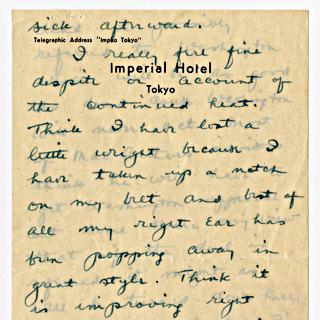 sick afterward.
Telegraphic Address "Impho Tokyo"
I really feel fine
Imperial Hotel
despite or account of
Tokyo
the continued heat.
Think I have lost a
little weight because I
have taken up a notch
on my belt and best of
all my right ear has
been popping away in
great style. Think it
is improving right